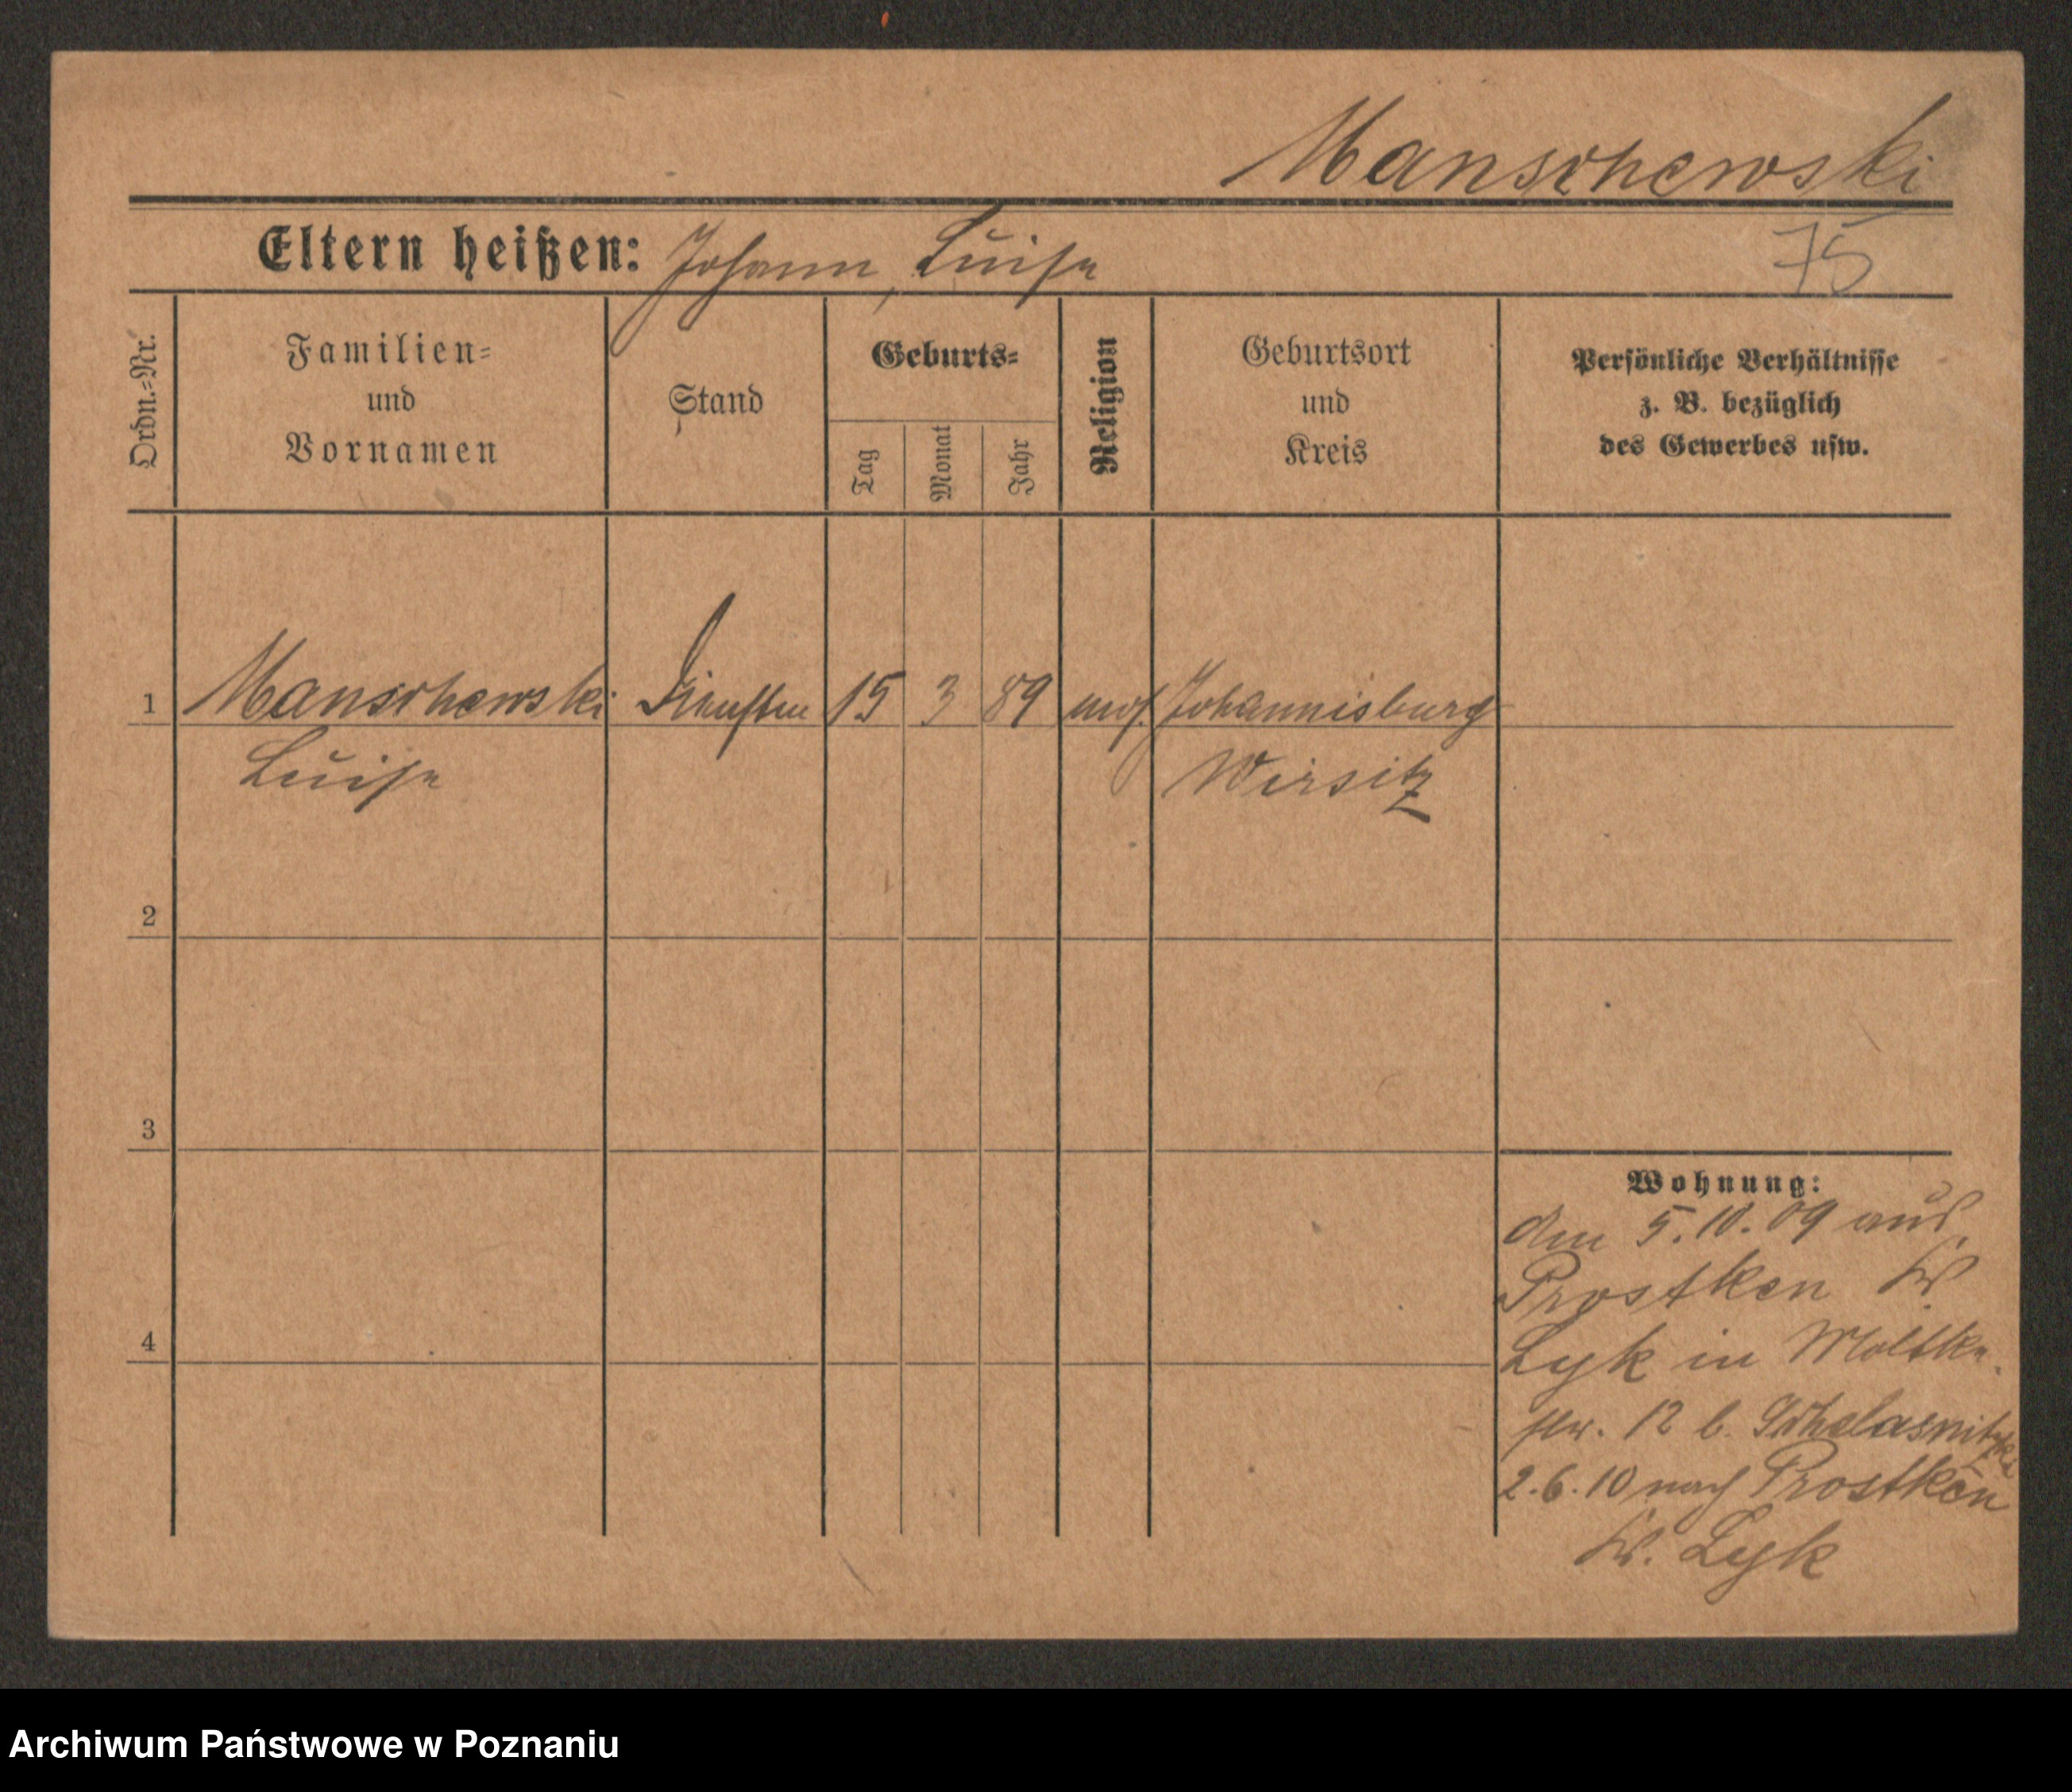 Manschewski
Eltern heißen: Johann, Luise
75
Ordn.=Nr.
Familien=
und
Vornamen
Stand
Geburts=
Tag
Monat
Jahr
Religion
Geburtsort
und
Kreis
Persönliche Verhältnisse
z. B. bezüglich
des Gewerbes usw.
1 Manschewski 15 3 89 Johannisburg
Luise Wirsitz
2
3
4
Wohnung:
den 5.10.09 aus
Prostken Kr.
Lyk in Moltke-
str. 12 b.
2.6.10 nach Prostken
Kr. Lyk
Archiwum Państwowe w Poznaniu